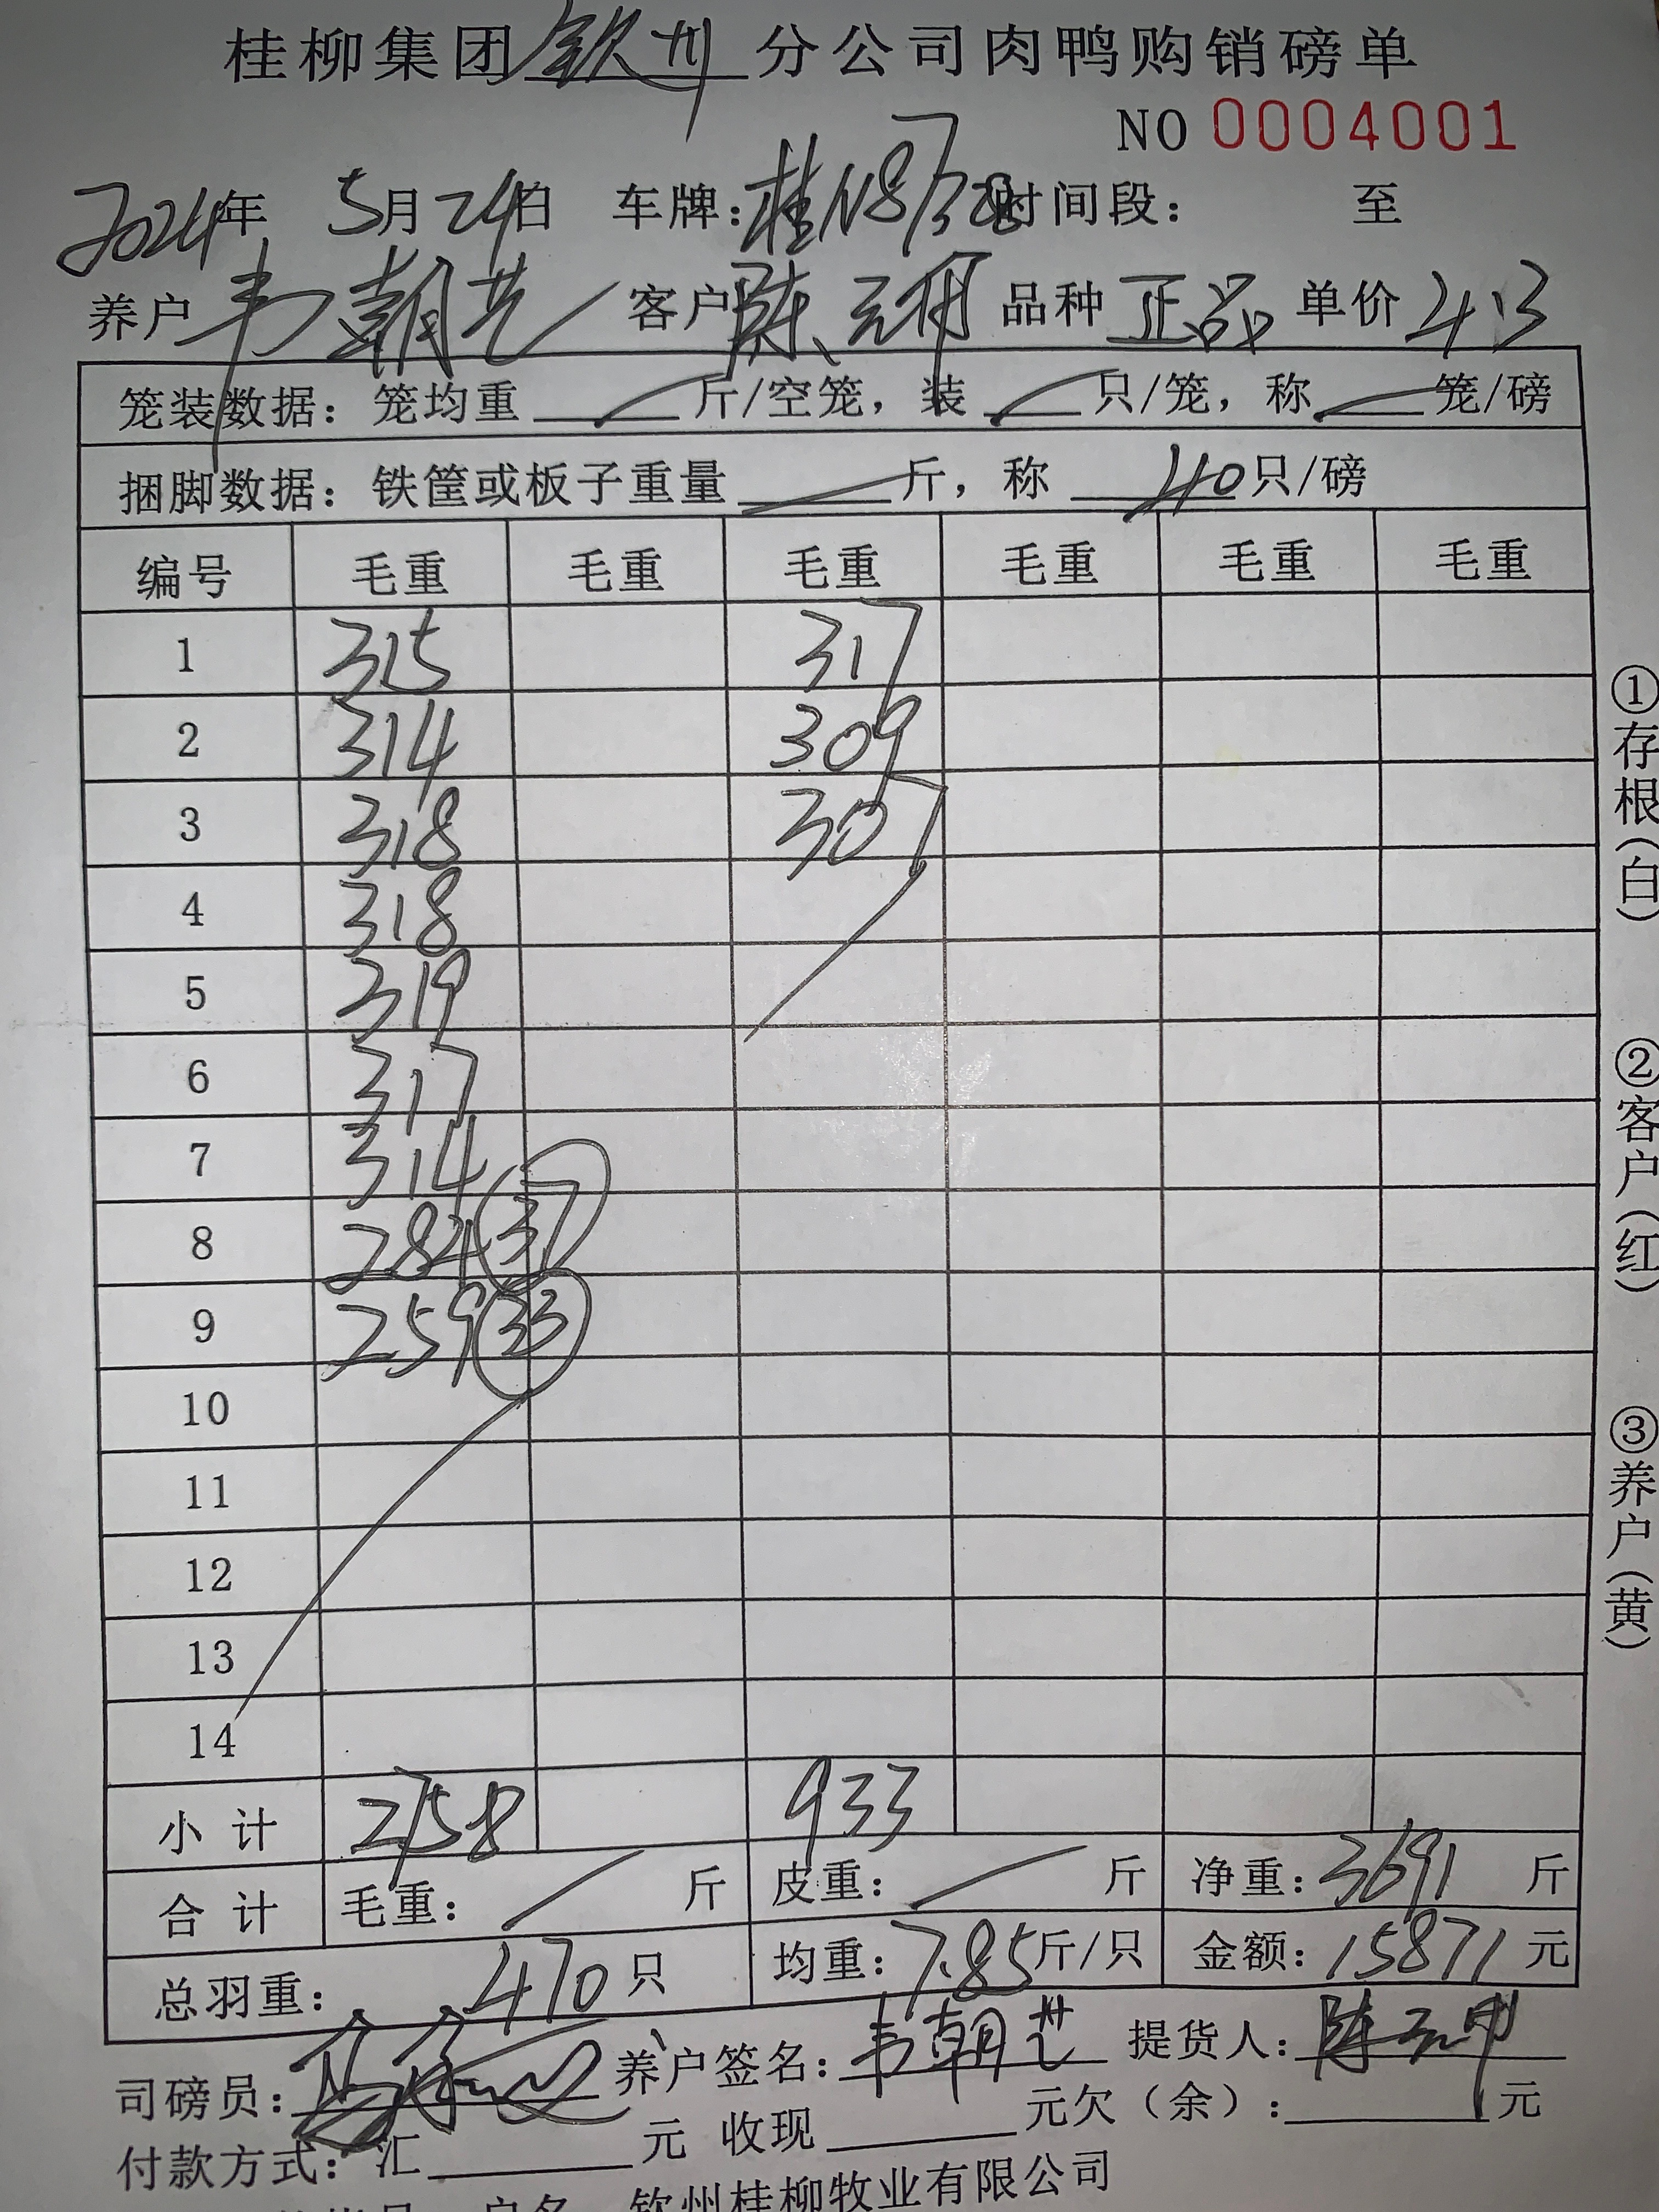 桂柳集团钦州分公司肉鸭购销磅单
NO 0004001
2024年 5月24日 车牌：桂N87328 时间段： 至
养户 韦朝芝 客户 陈元明 品种 正品 单价 4.3
笼装数据：笼均重 / 斤/空笼，装 / 只/笼，称 / 笼/磅
捆脚数据：铁筐或板子重量 / 斤，称 40 只/磅
编号 毛重 毛重 毛重 毛重 毛重 毛重
1 315 317
2 314 309
3 318 307
4 318
5 319
6 317
7 314
8 284 37
9 259 33
10
11
12
13
14
小计 2758 933
合计 毛重： / 斤 皮重： / 斤 净重：3691 斤
总羽重： 470只 均重：7.85斤/只 金额：15871元
司磅员： 养户签名：韦朝芝 提货人：陈元明
付款方式：汇 元 收现 元欠（余）： 元
户名 钦州桂柳牧业有限公司
①存根（白）
②客户（红）
③养户（黄）